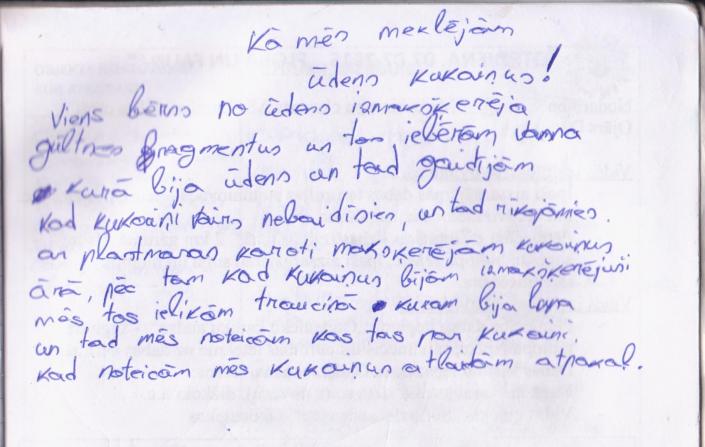 Kā mēs meklējām
ūdens kukaiņus!
Viens bērns no ūdens izmakšķerēja
gultnes fragmentus un tos iebērām vanna
kurā bija ūdens un tad gaidījām
kad kukaiņi vairs nebaudīsies, un tad rīkojāmies.
ar plastmasas karoti makšķerējām kukaiņus
ārā, pēc tam kad kukaiņus bijām izmakšķerējuši
mēs tos ielikām trauciņā kuram bija lupa
un tad mēs noteicām kas tas par kukaini.
kad noteicām mēs kukaiņus atlaidām atpakaļ.